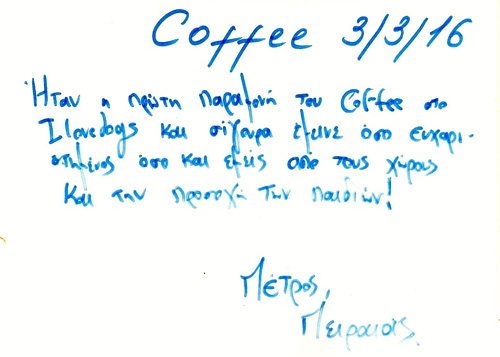 Coffee 3/3/16
Ήταν η πρώτη παραμονή του Coffee στο
Ilovedogs και σίγουρα έμεινε όσο ευχαρι-
στημένος όσο και εμείς από τους χώρους
και την προσοχή των παιδιών!
Πέτρος,
Πειραιάς.